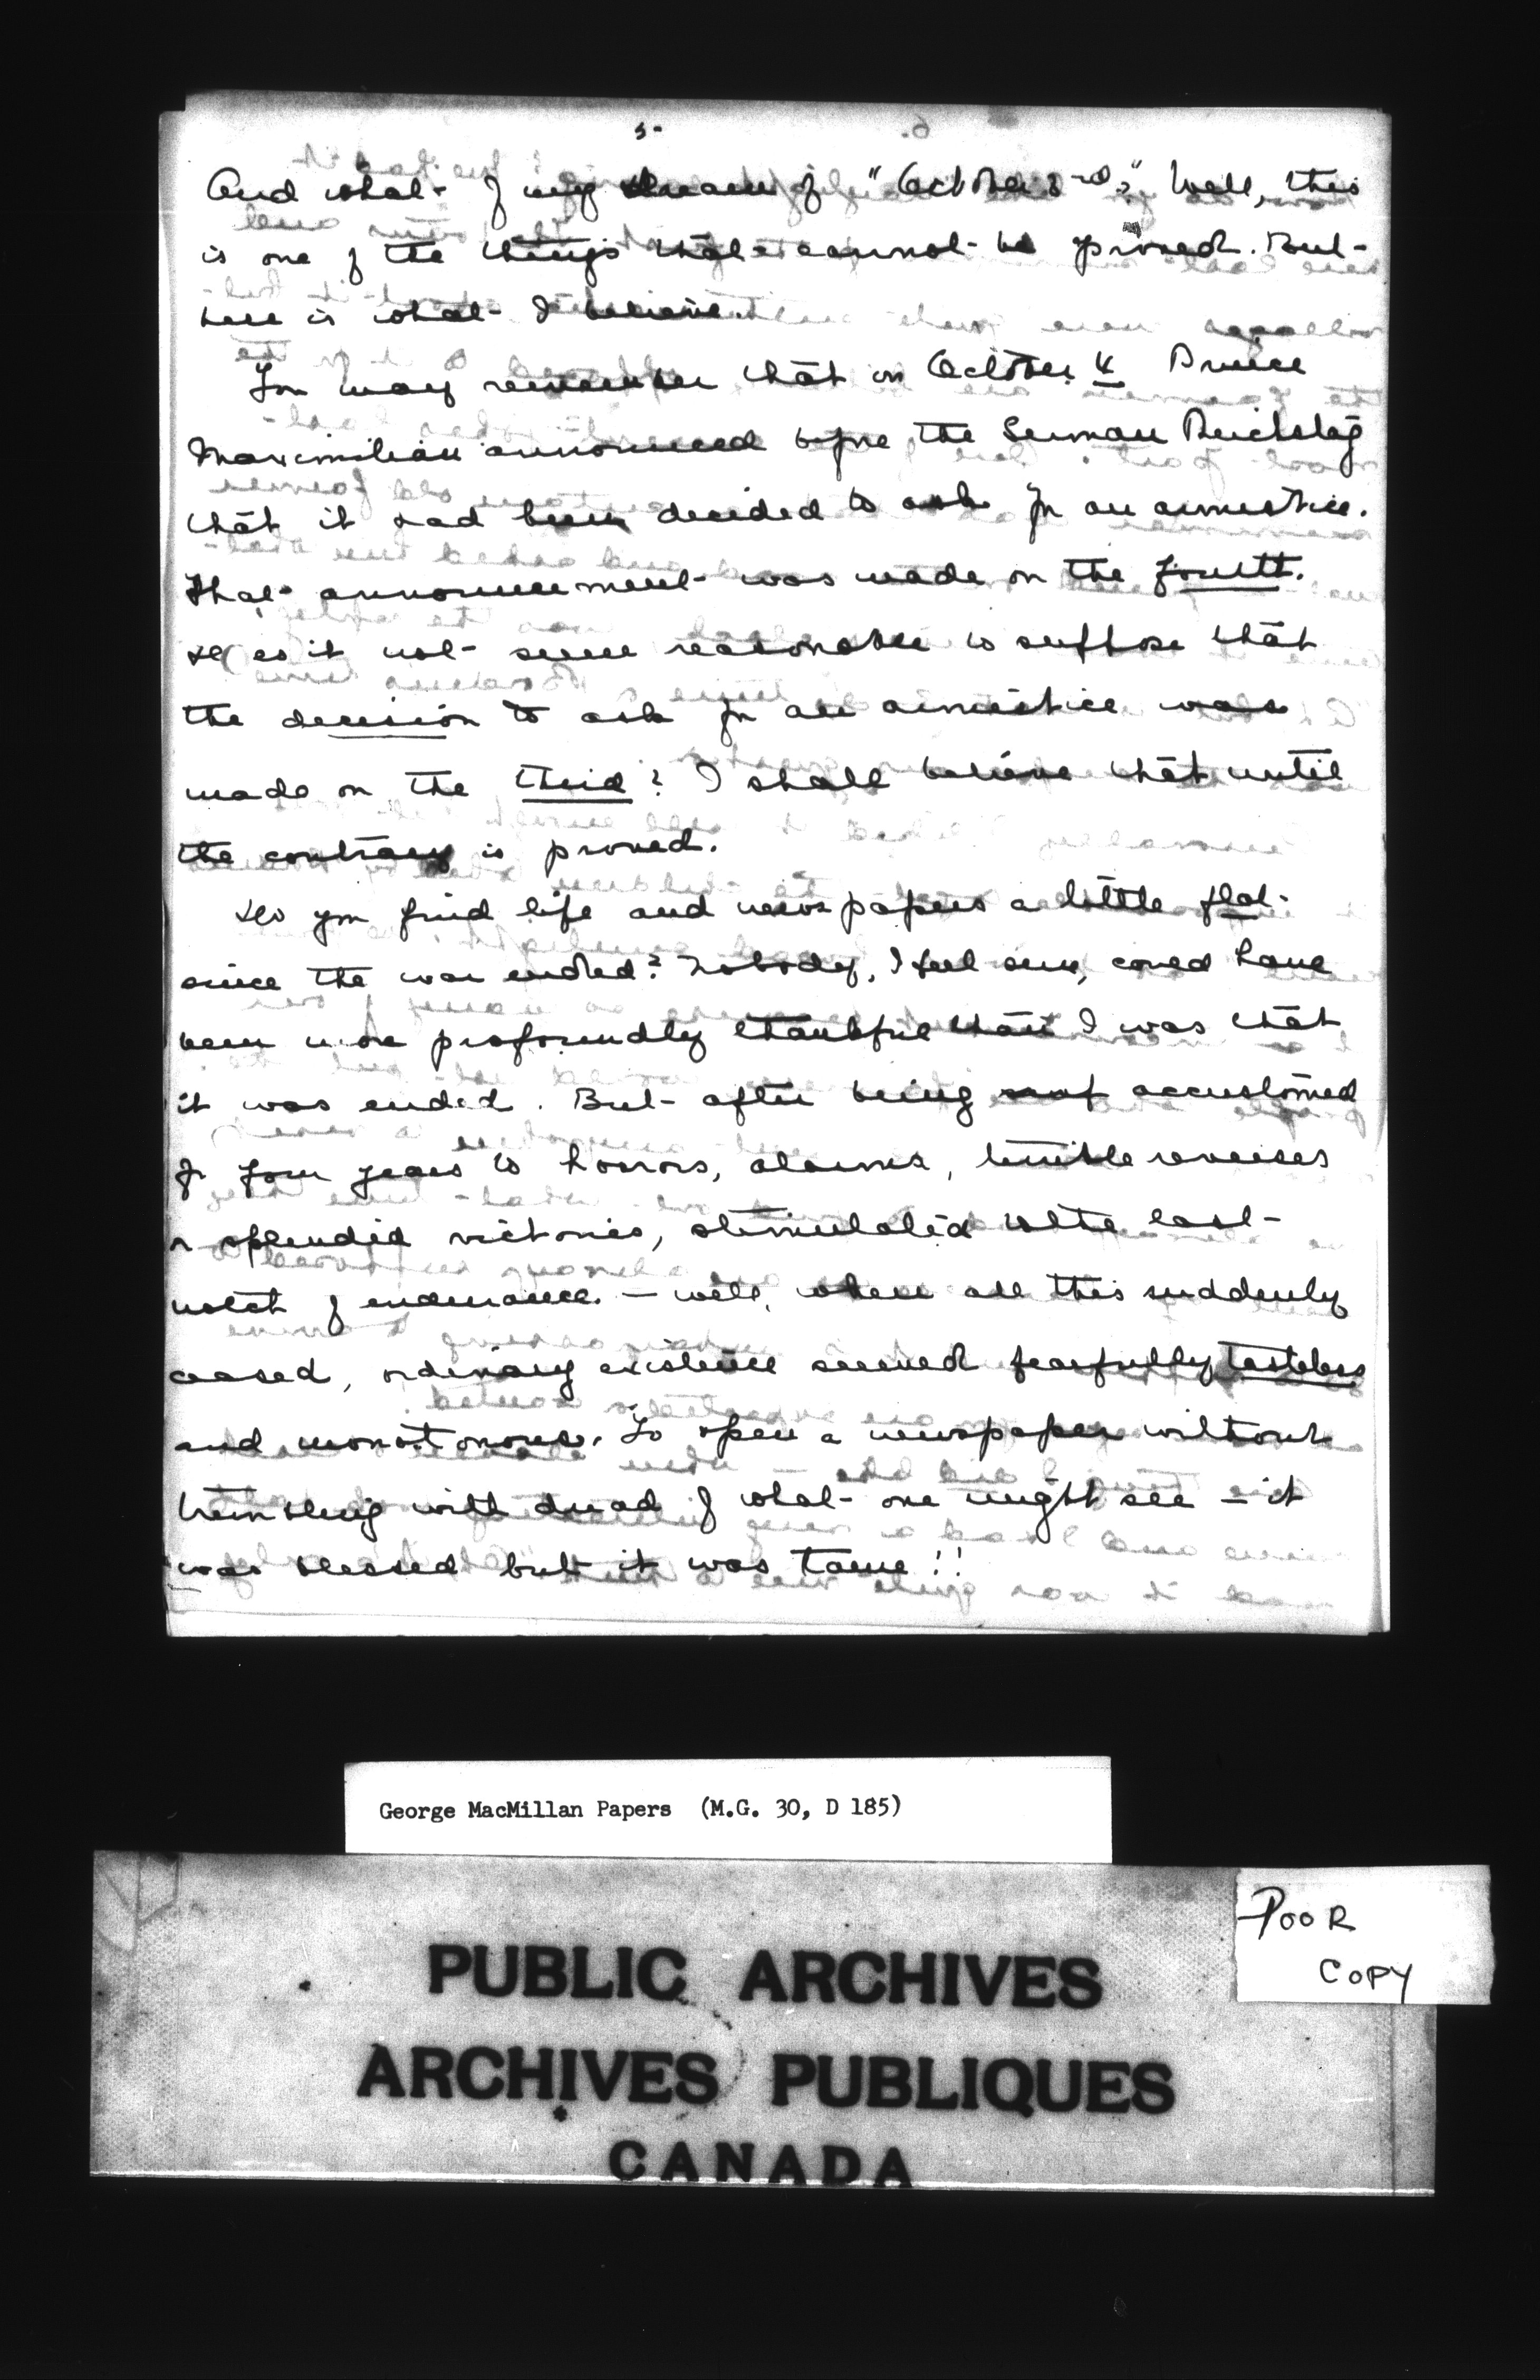 5-
And what of my dream of "October 3rd?" Well, this
is one of the things that cannot be proved. But
here is what I believe.
You may remember that on October 4 Prince
Maximilian announced before the German Reichstag
that it had been decided to ask for an armistice.
That announcement was made on the fourth.
Does it not seem reasonable to suppose that
the decision to ask for an armistice was
made on the third? I shall believe that until
the contrary is proved.
Do you find life and newspapers a little flat
since the war ended? Nobody, I feel sure, could have
been more profoundly thankful than I was that
it was ended. But after being accustomed
for four years to horrors, alarms, terrible reverses
or splendid victories, stimulated to the last
notch of endurance. — well, when all this suddenly
ceased, ordinary existence seemed fearfully tasteless
and monotonous. To open a newspaper without
trembling with dread of what one might see — it
was blessed but it was tame!!
George MacMillan Papers (M.G. 30, D 185)
POOR
COPY
PUBLIC ARCHIVES
ARCHIVES PUBLIQUES
CANADA